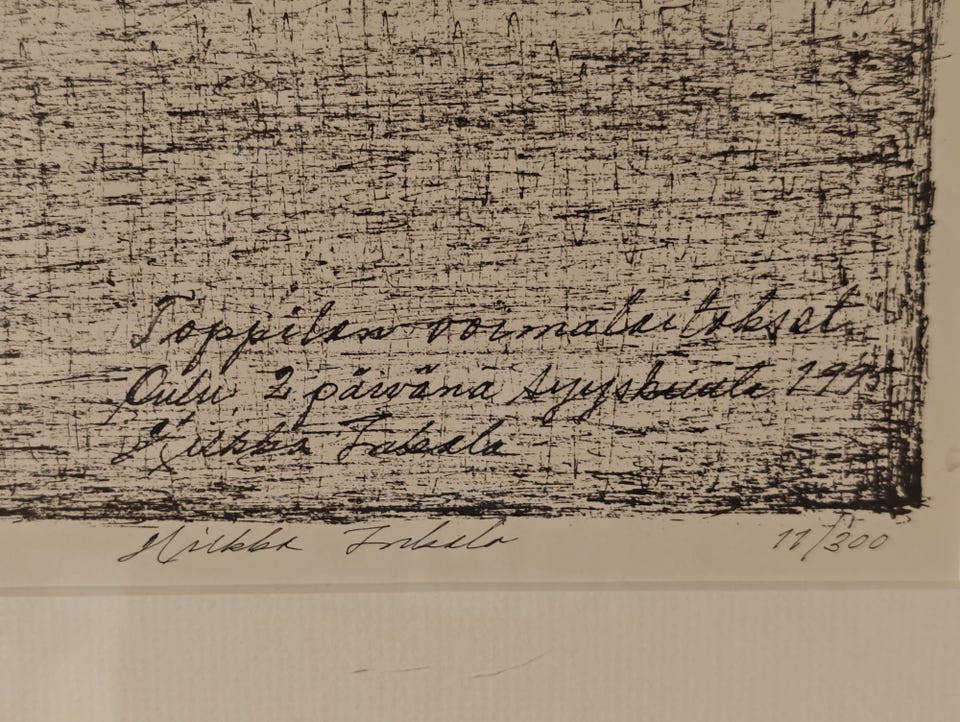 Toppilan voimalaitokset
Oulu, 2 päivänä syyskuuta 1995
Hilkka Inkala
Hilkka Inkala 11/300